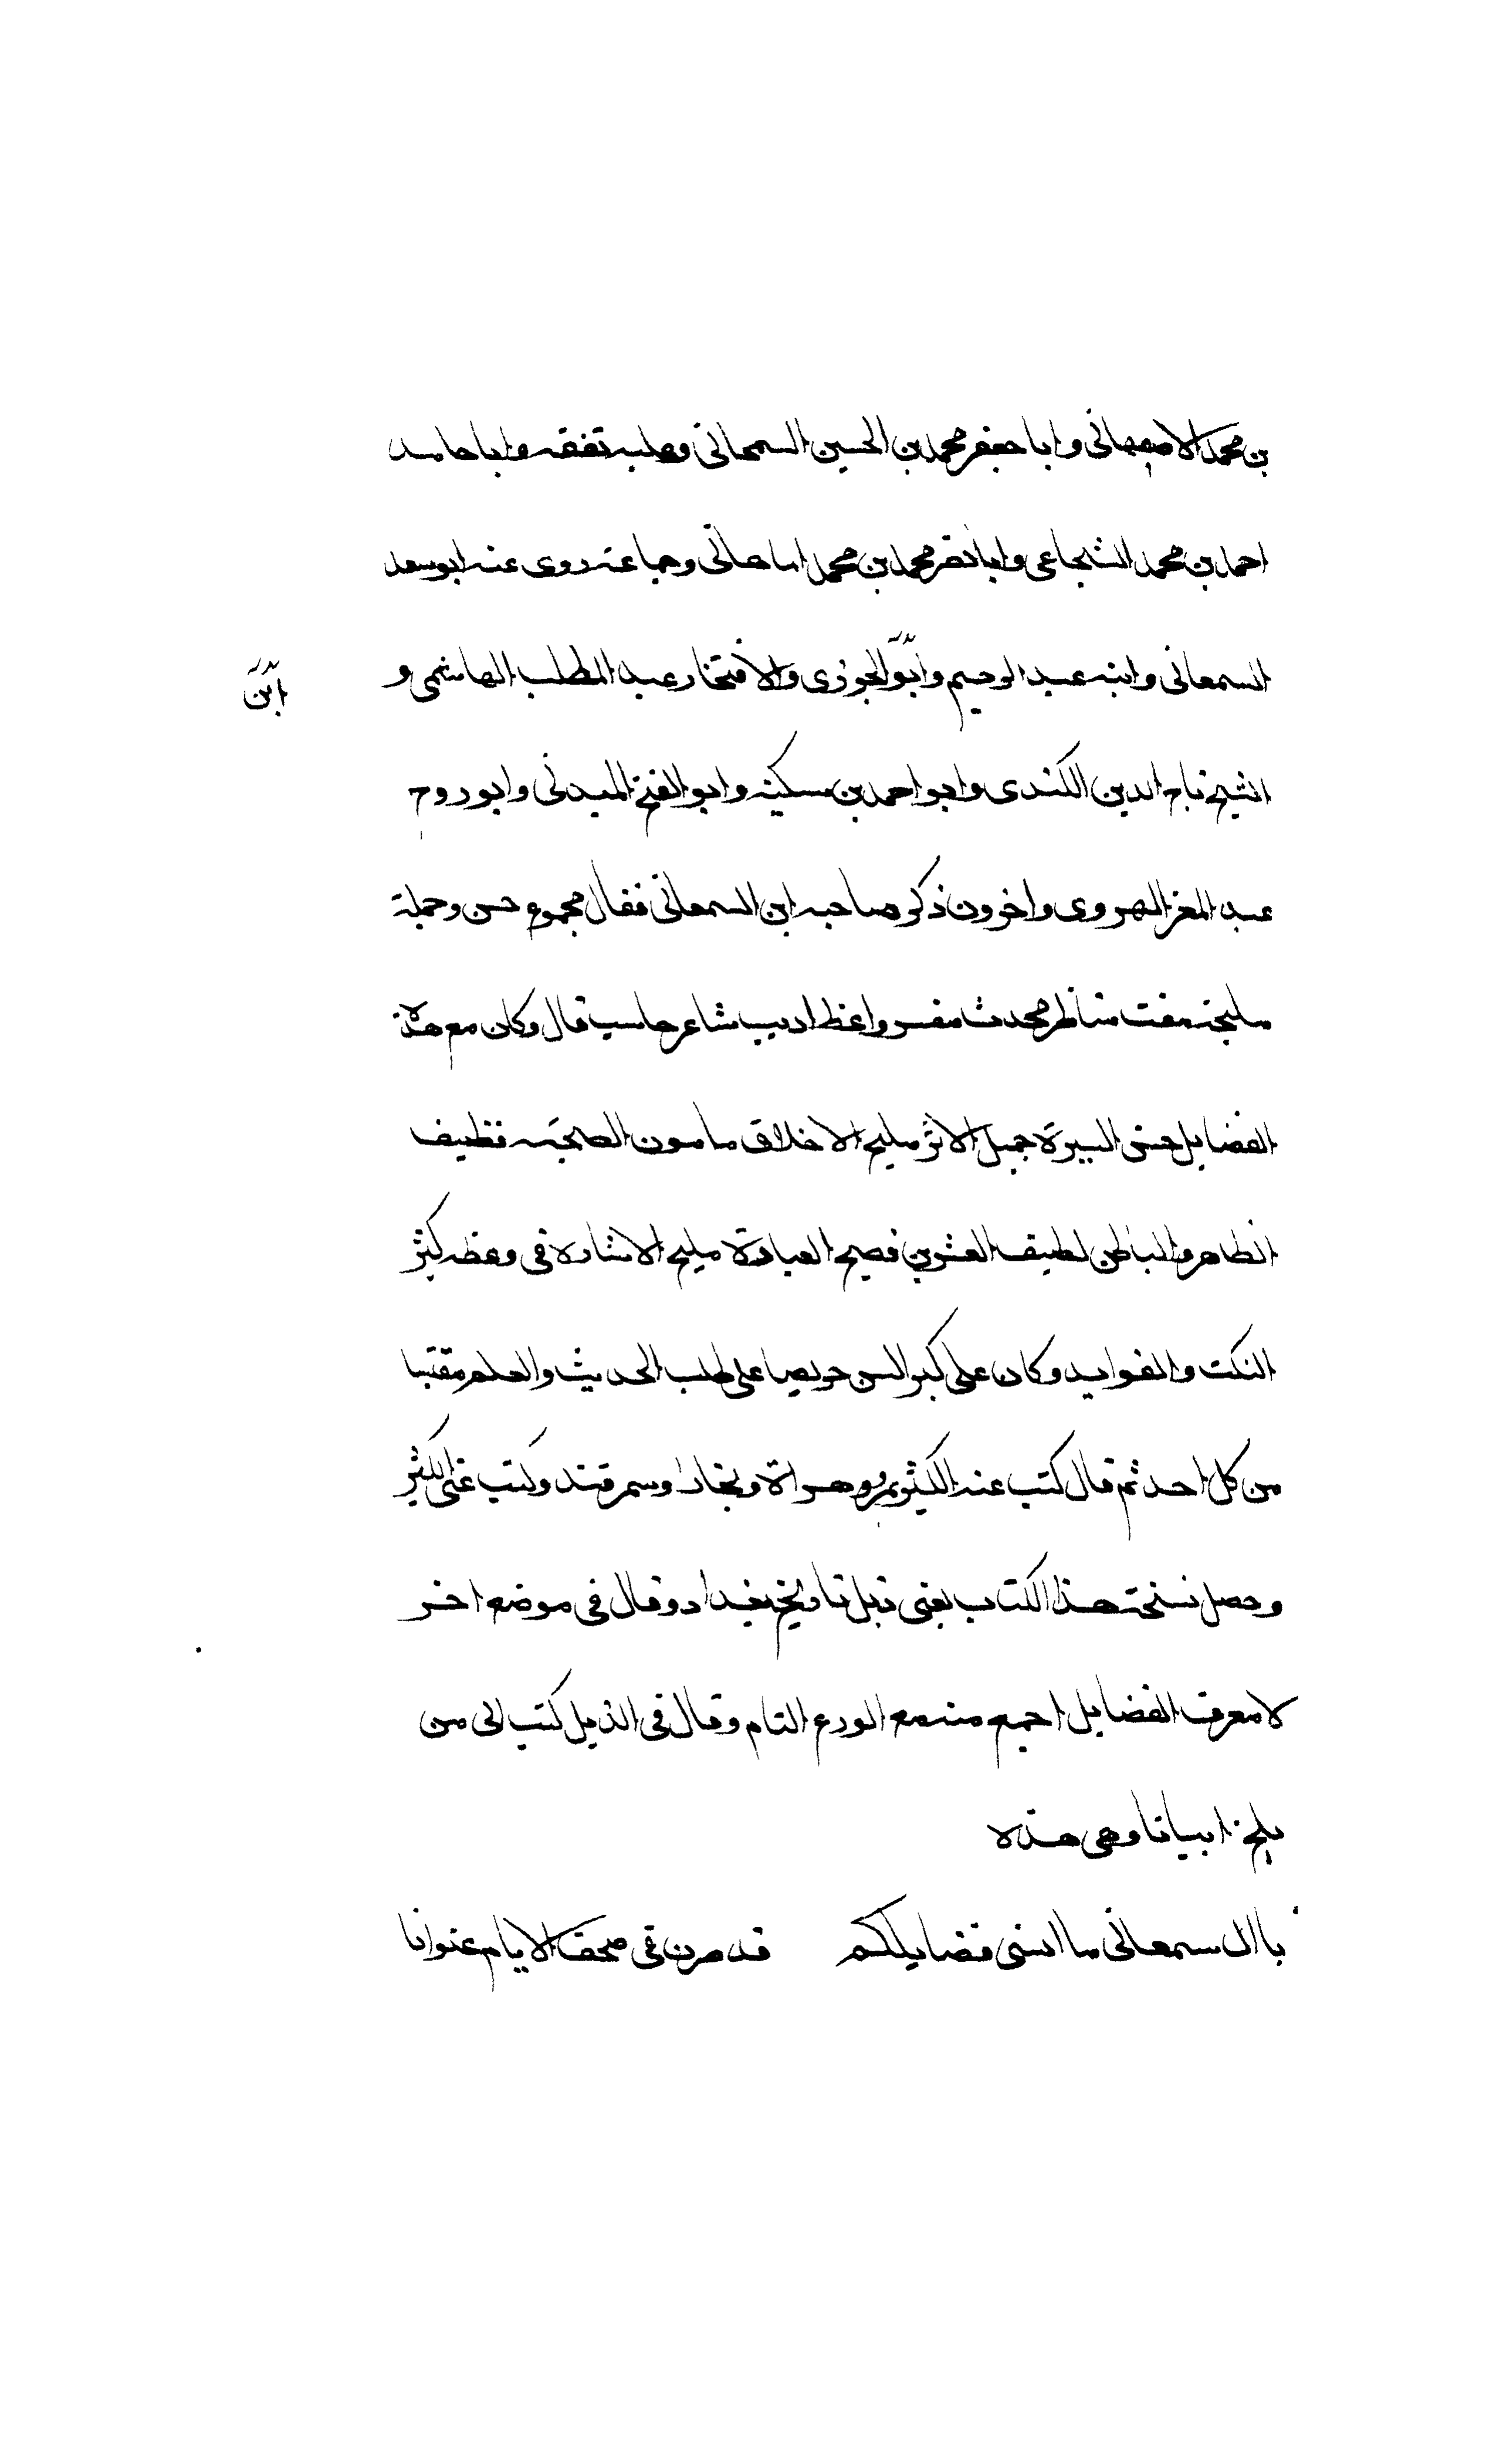 بن محمد الاصفهانى وابا جعفر محمد بن الحسين السمحانى وعليه تفقه وابا حامد
احمد بن محمد الشجاعى وابا نصر محمد بن محمد الماهانى وجماعة روى عنه ابو سعد
السمعانى وابنه عبد الرحيم وابو الجوزى والافتخار عبد المطلب الهاشمى و
ابن
الشيخ تاج الدين الكندى وابو احمد بن سكينه وابو الفتح الميدنى وابو روح
عبد المعز الهروى واخرون ذكره صاحبه ابن السمعانى فقال مجموع حسن وجملة
مليحة مفت مناظر محدث مفسر واعظ اديب شاعر حاسب قال وكان مع هذه
الفضايل حسن السيرة جميل الاثر مليح الاخلاق مامون الصحبه نظيف
الظاهر والباطن لطيف العشرين فصيح العبارة مليح الاشاره فى وعظه كثير
النكت والفوايد وكان على كبر السن حريصا على طلب الحديث والعلم مقتبسا
من كل احد ثم قال كتب عنه الكثير بمرو وهراة وبخارا وسمرقند وكتب عنى الكثير
وحصل نسخة هذا الكتاب يعنى ذيل تاريخ بغداد وقال فى موضع اخر
لا معرف الفضايل اجمع منه مع الورع التام وقال فى الذيل كتب الى من
بلخ ابياتا وهى هذه
يا ال سمعانى ما اسنى فضايلكم قد صرن فى صحف الايام عنوانا